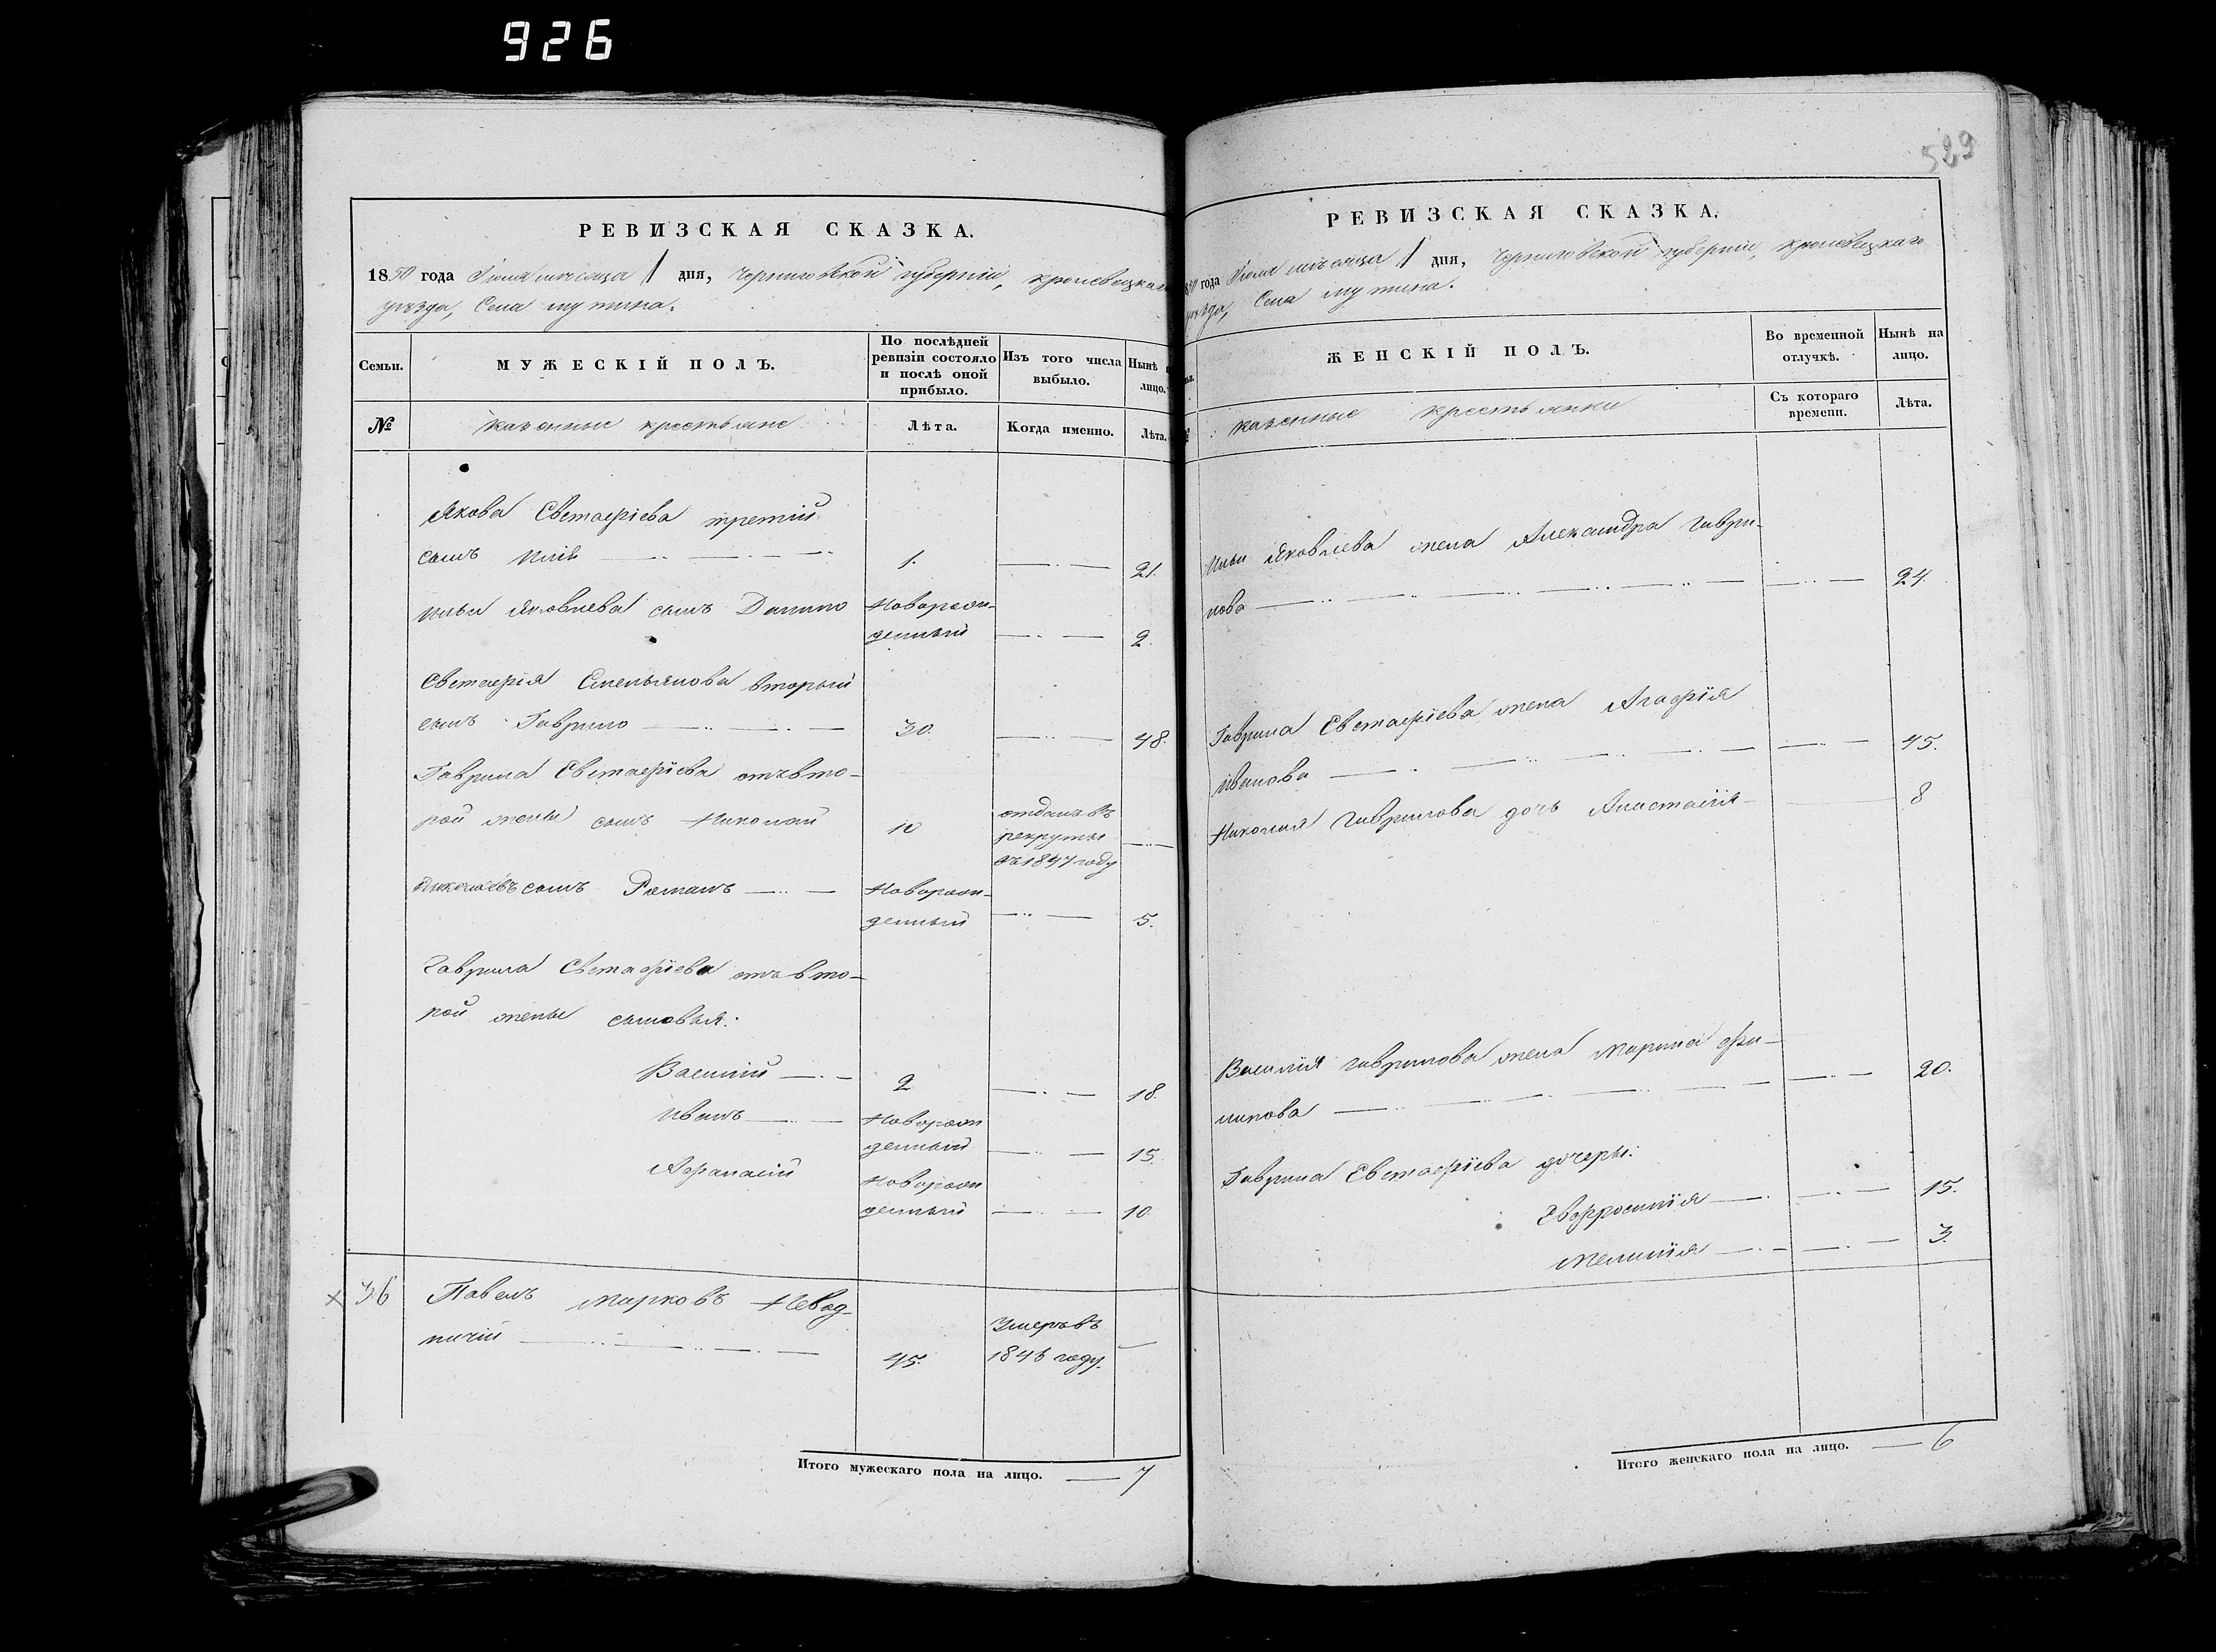 926
529
РЕВИЗСКАЯ СКАЗКА.
1850 года Іюля мѣсяца 1 дня, Черниговской губерніи, кролевецкаго
уѣзда, Села мутина.
Семьи.
МУЖЕСКІЙ ПОЛЪ.
По послѣдней
ревизіи состояло
и послѣ оной
прибыло.
Изъ того числа
выбыло.
Нынѣ н
лицо.
№
казенные крестьяне
Лѣта.
Когда именно.
Лѣта.
Якова Евстафіева третій
сынъ Илія 1. 21.
Ильи Яковлева сынъ Данило Новорож-
денный 2.
Евстафія Емельянова вторый
сынъ Гаврило 30. 48.
Гаврила Евстафіева отъ вто-
рой жены сынъ Николай 10
отданъ въ
рекруты
въ 1847 году
Николаевъ сынъ Романъ Новорож-
денный 5.
Гаврила Евстафіева отъ вто-
рой жены сыновья:
Василій 2 18.
Иванъ Новорож
денный 15.
Афанасій Новорож
денный 10
36 Павелъ Марковъ Невод-
ничій 45.
Умеръ въ
1846 году.
Итого мужескаго пола на лицо. 7
РЕВИЗСКАЯ СКАЗКА.
года Іюля мѣсяца 1 дня, Черниговской губерніи, кролевецкаго
уѣзда, Села мутина.
ЖЕНСКІЙ ПОЛЪ.
Во временной
отлучкѣ.
Нынѣ на
лицо.
казенные крестьянки
Съ котораго
времени.
Лѣта.
Ильи Яковлева жена Александра Гаври-
лова 24.
Гаврила Евстафіева жена Агафія
Иванова 45.
Николая Гаврилова дочь Анастасія 8
Василія Гаврилова жена Марина Фи-
липова 20.
Гаврила Евстафіева дочери:
Евфросинія 15.
Меланія 3.
Итого женскаго пола на лицо. 6